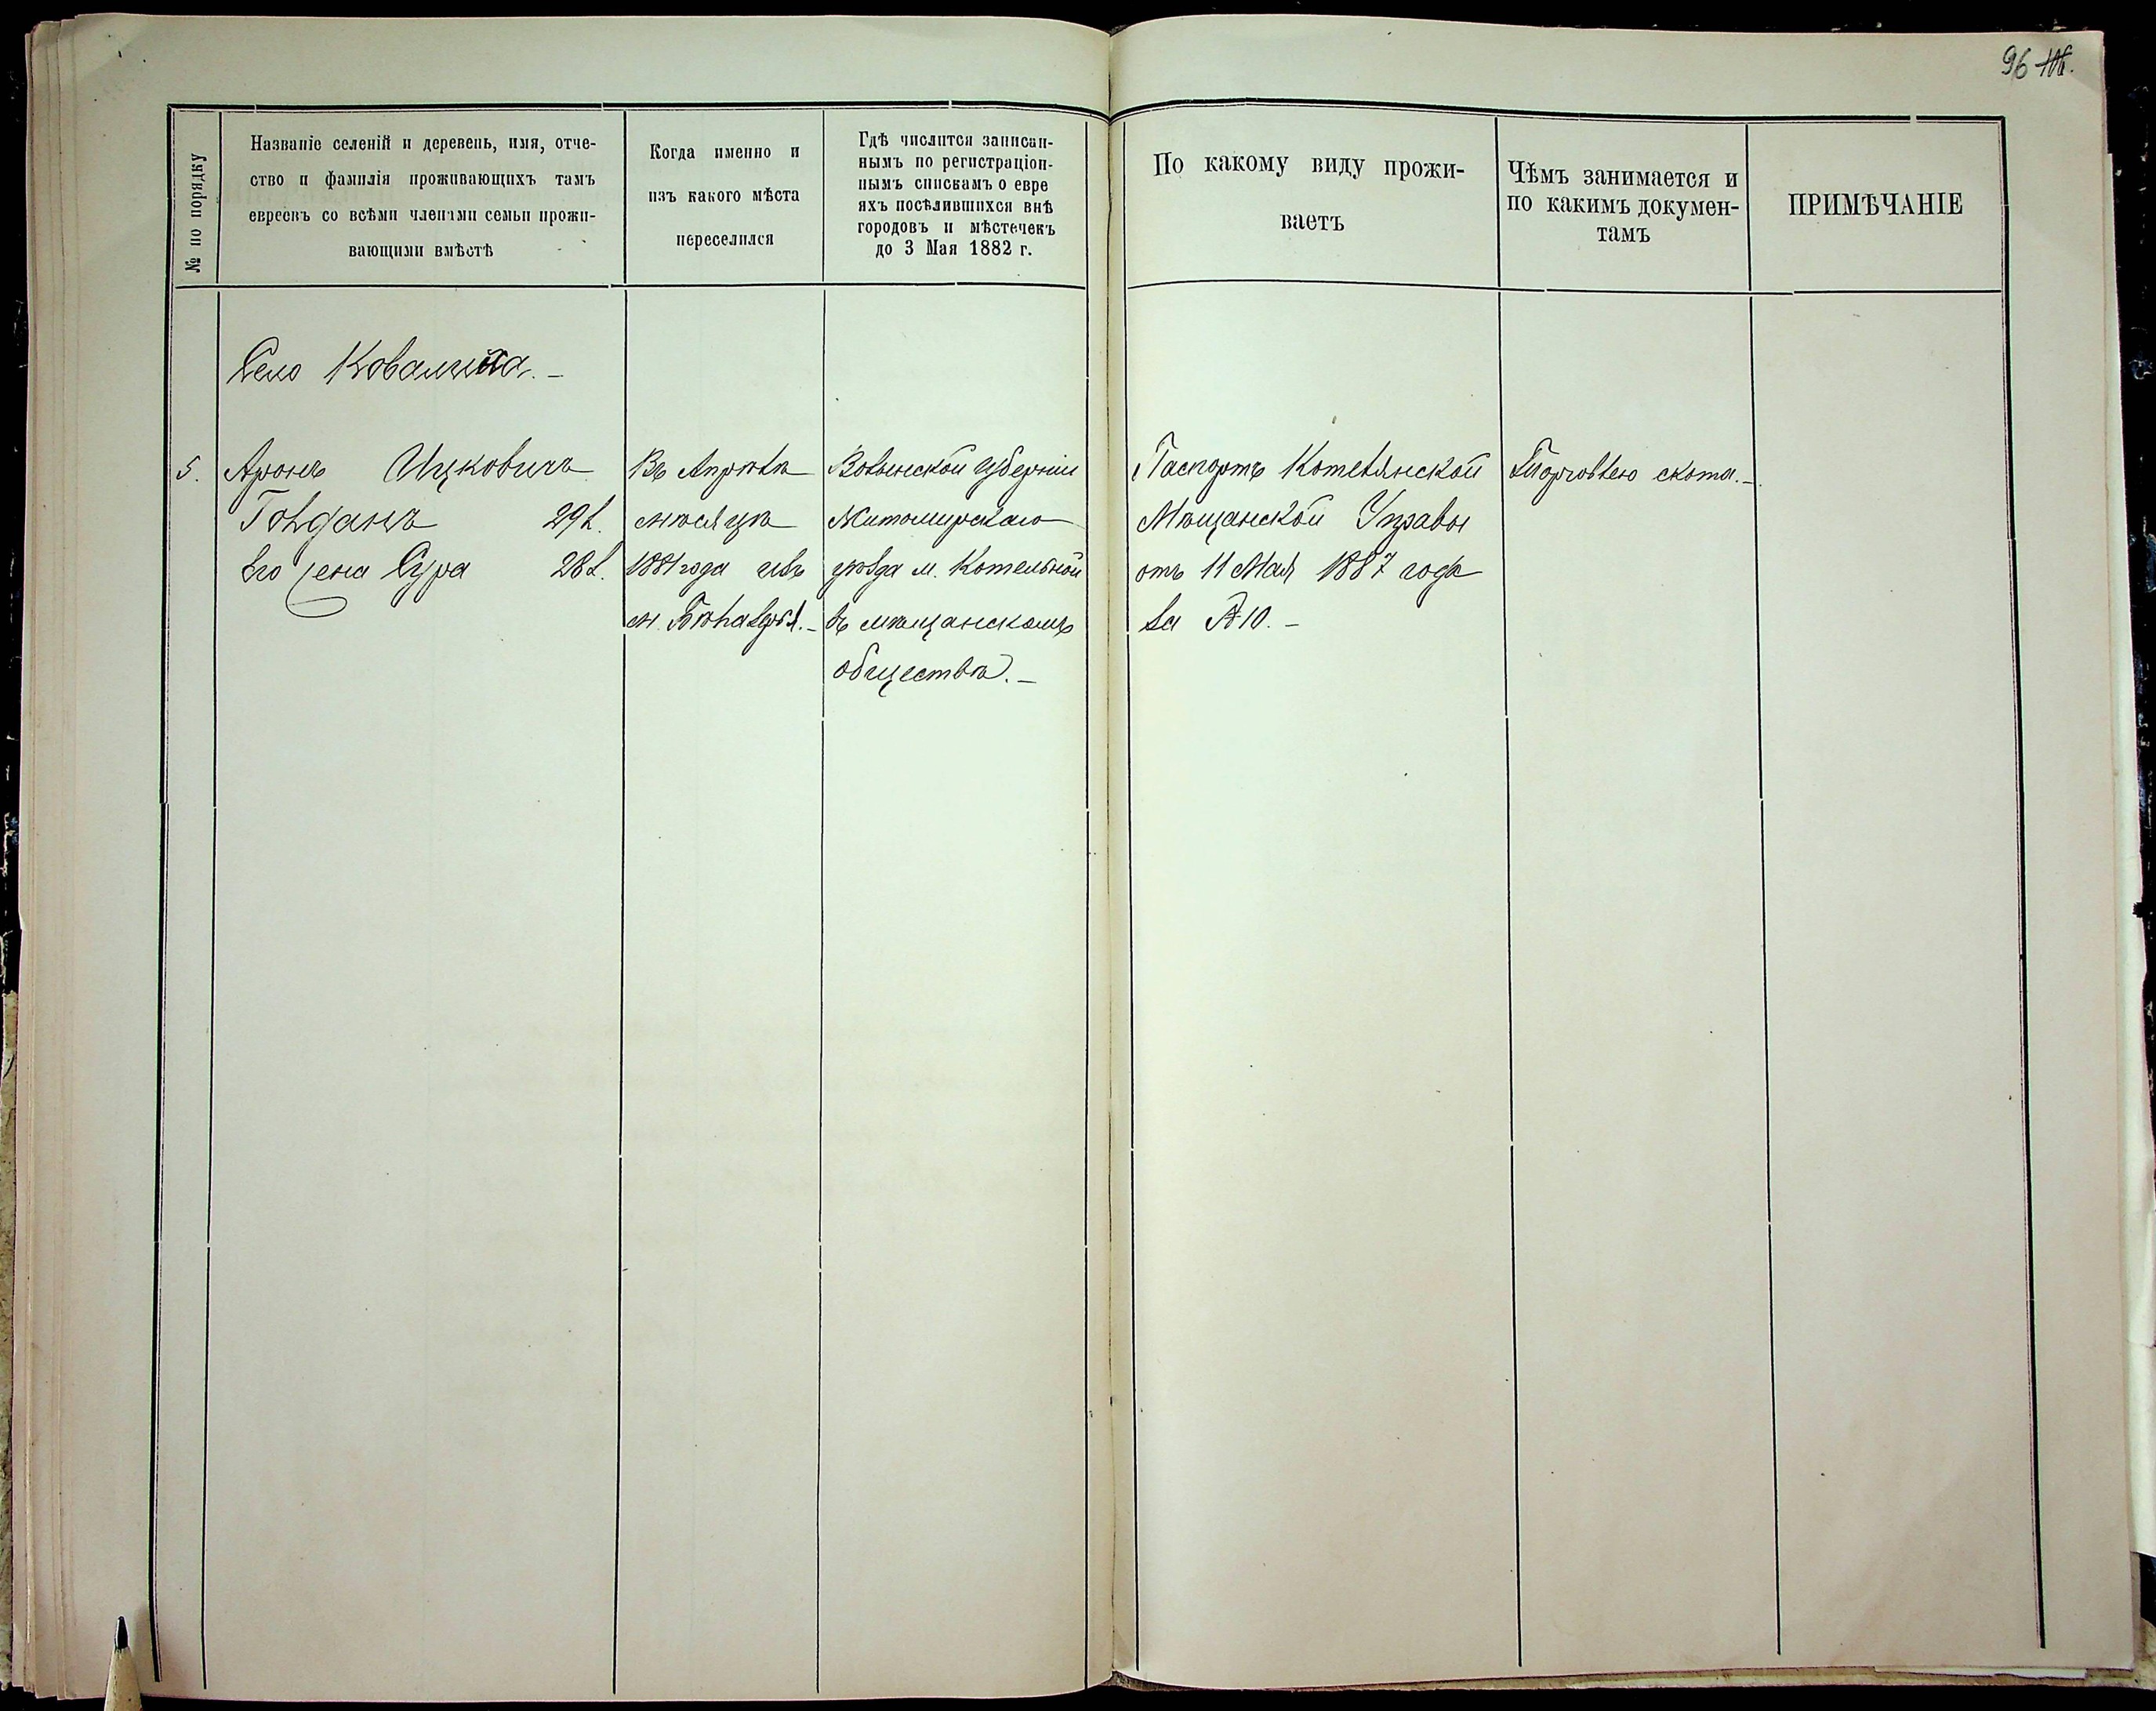 96 106.
№ по порядку
Названіе селеній и деревень, имя, отче-
ство и фамилія проживающихъ тамъ
евреевъ со всѣми членами семьи прожи-
вающими вмѣстѣ
Когда именно и
изъ какого мѣста
переселился
Гдѣ числится записан-
нымъ по регистраціон-
нымъ спискамъ о евре
яхъ поселившихся внѣ
городовъ и мѣстечекъ
до 3 Мая 1882 г.
По какому виду прожи-
ваетъ
Чѣмъ занимается и
по какимъ докумен-
тамъ
ПРИМѢЧАНІЕ
Село
5. Аронъ Ицковичъ
Гольданъ 29 л.
Его жена Сура 28 л.
Въ Апрѣлѣ
мѣсяцѣ
1881 года изъ
м.
Волынской губерніи
Житомирскаго
уѣзда м. Котельной
въ мѣщанскомъ
обществѣ. –
Паспортъ Котелянской
Мѣщанской Управы
отъ 11 Мая 1887 года
за № 10. –
Торговлею скота. –